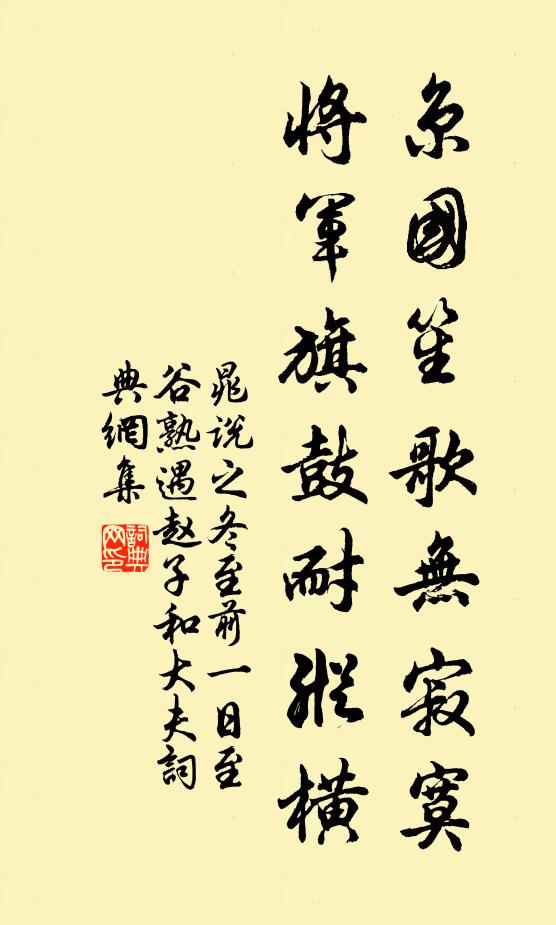 京國笙歌無寂寞
將軍旗鼓耐縱橫
晁说之冬至前一日至
谷熟遇赵子和大夫詞
典網集
詞典网印